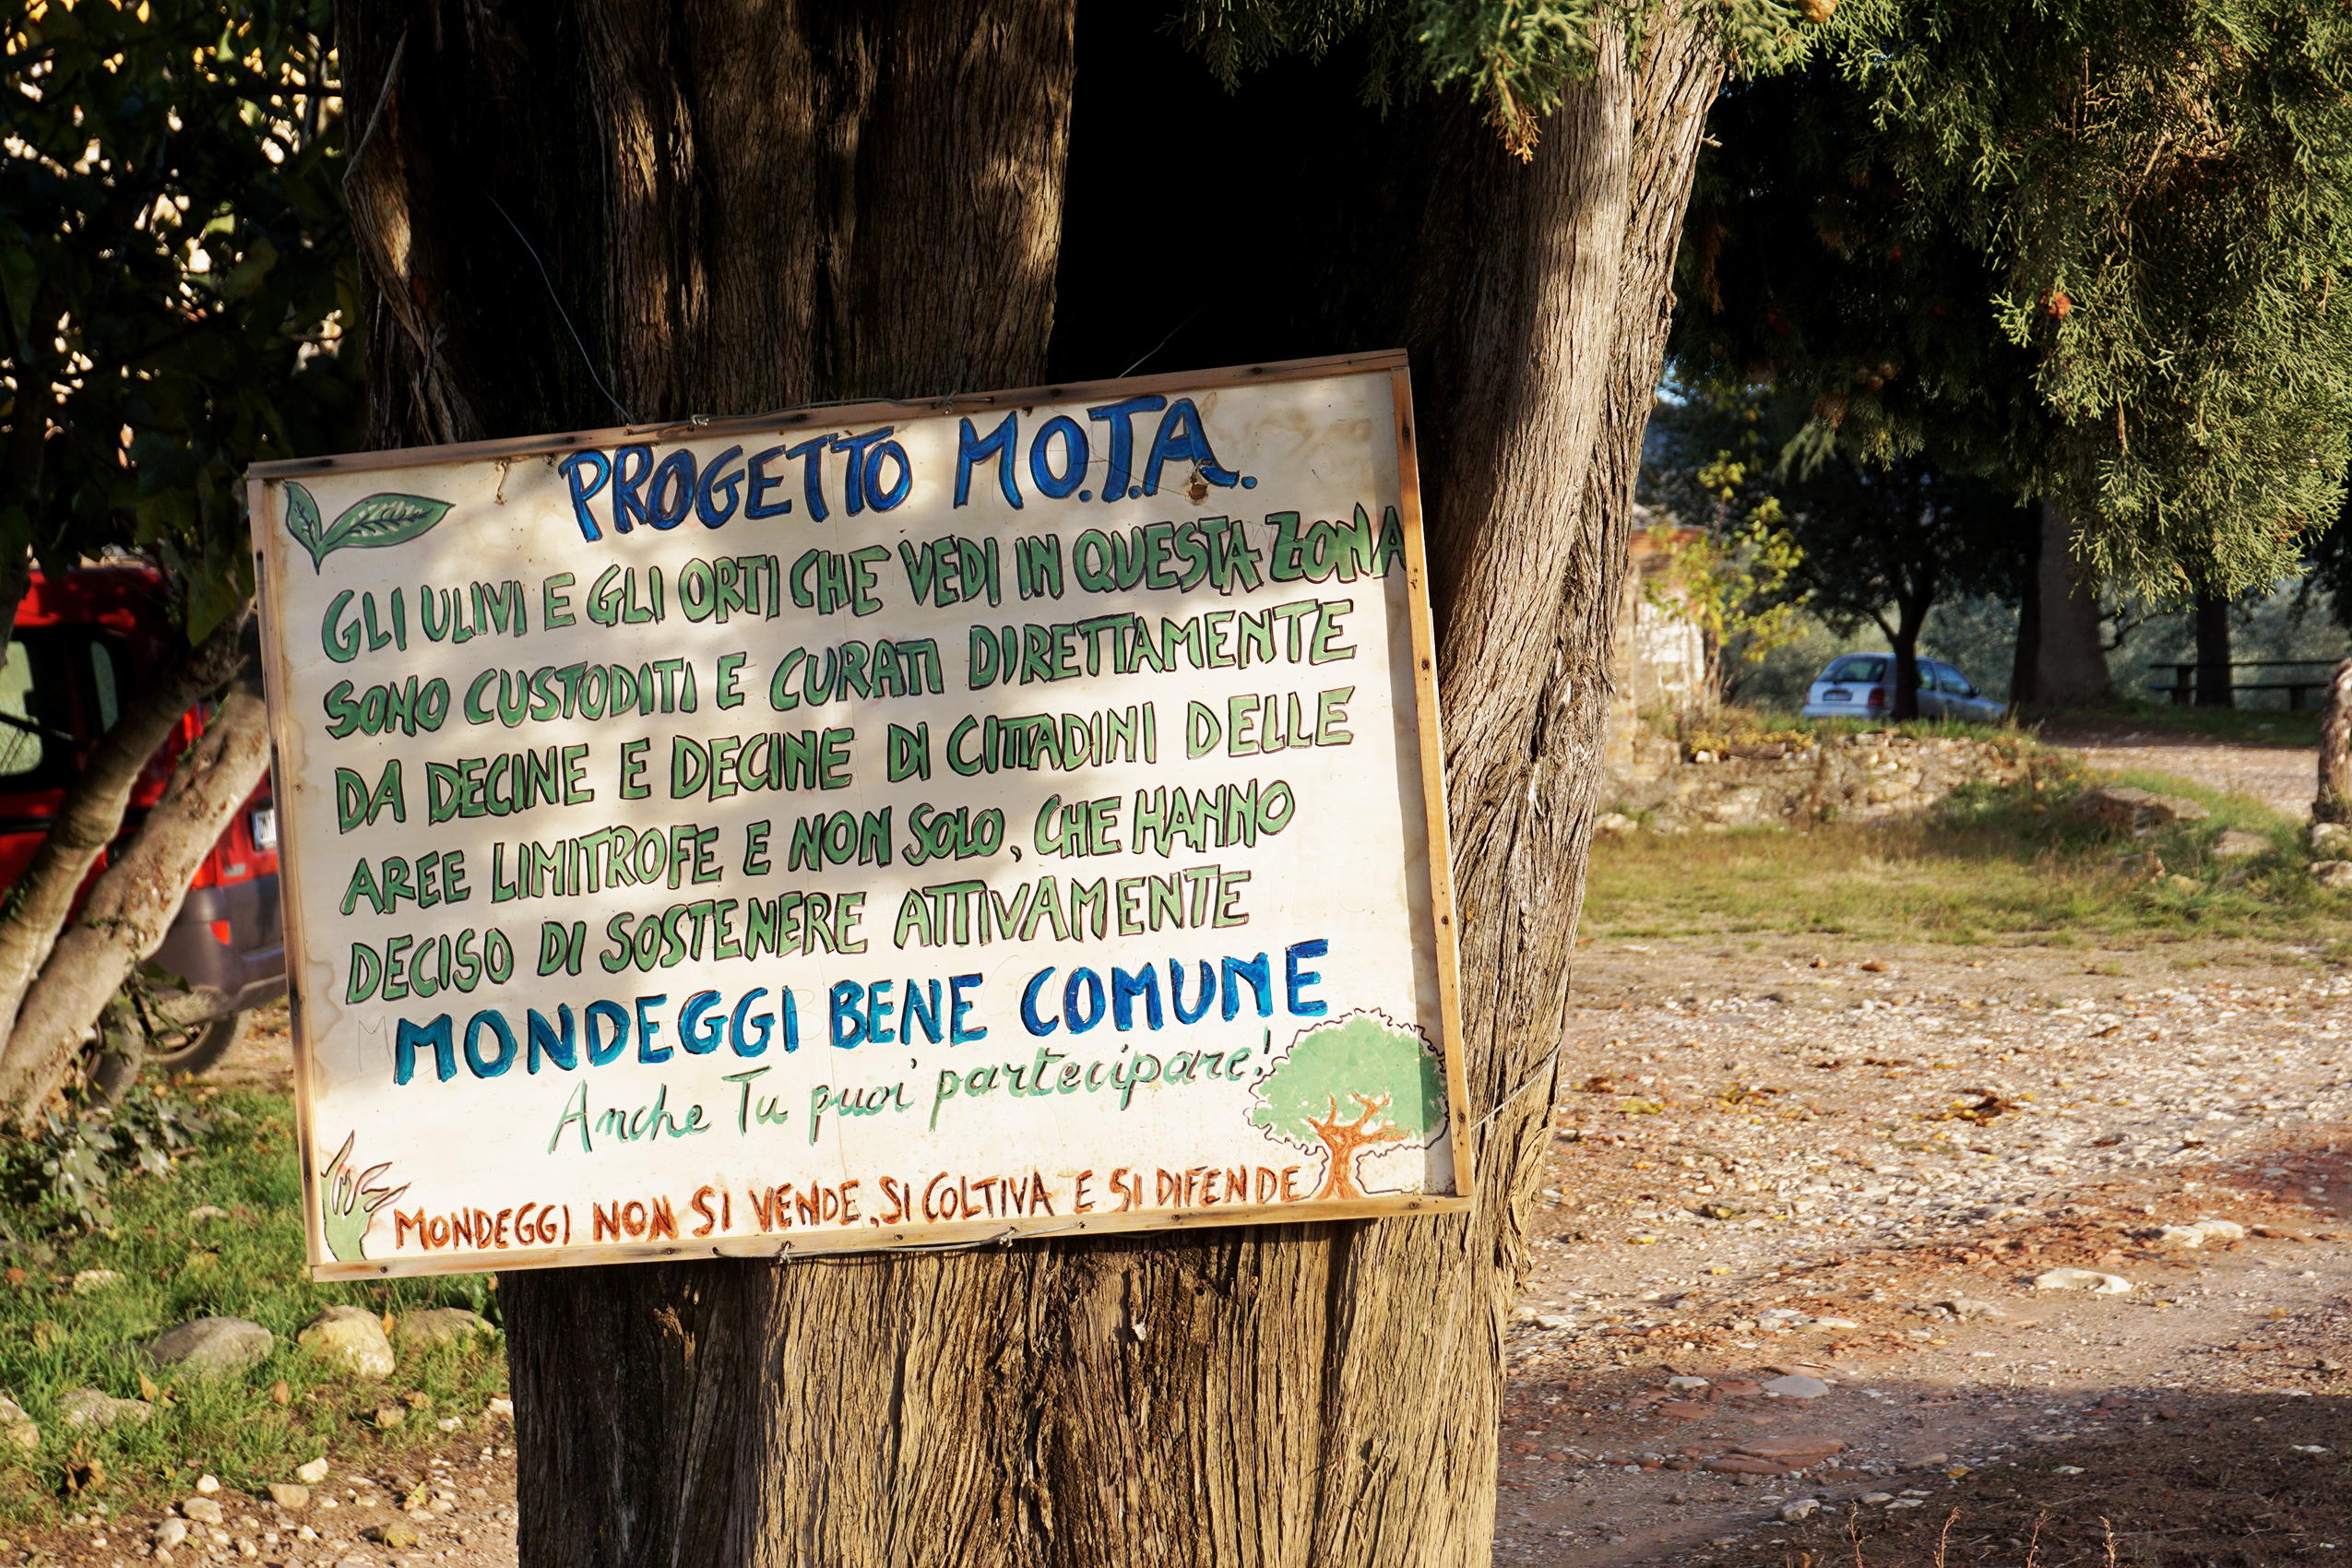 PROGETTO MO.T.A.
GLI ULIVI E GLI ORTI CHE VEDI IN QUESTA ZONA
SONO CUSTODITI E CURATI DIRETTAMENTE
DA DECINE E DECINE DI CITTADINI DELLE
AREE LIMITROFE E NON SOLO, CHE HANNO
DECISO DI SOSTENERE ATTIVAMENTE
MONDEGGI BENE COMUNE
Anche Tu puoi partecipare!
MONDEGGI NON SI VENDE, SI COLTIVA E SI DIFENDE